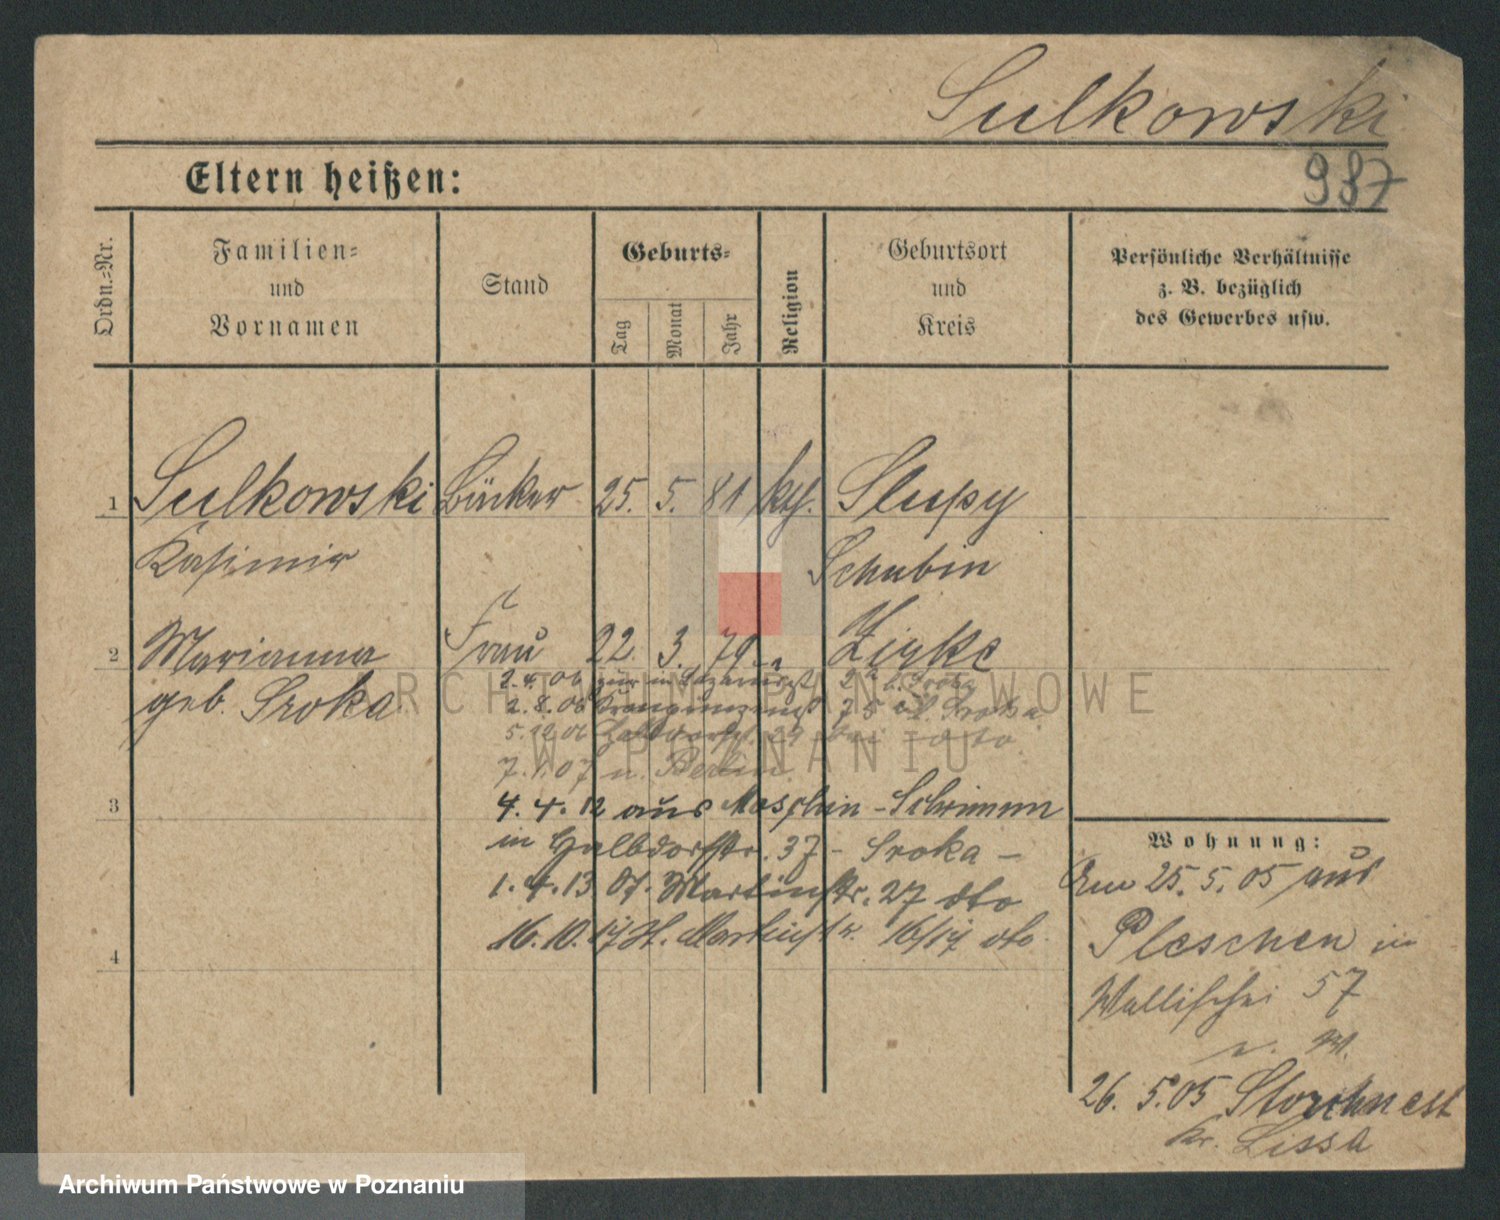 Sulkowski
987
Eltern heißen:
Ordn.=Nr.
Familien=
und
Vornamen
Stand
Geburts=
Tag
Monat
Jahr
Religion
Geburtsort
und
Kreis
Persönliche Verhältnisse
z. B. bezüglich
des Gewerbes usw.
1 Sulkowski Bäcker 25. 5. 81 kth. Slupy
Kasimir Schubin
2 Marianna Frau 22. 3. 79 Zirke
geb. Sroka
2. 4. 06 Sroka
2. 8. 06 Sroka
5. 12. 06 29 bei dto
7. 1. 07 n. Berlin
3
4. 4. 12 aus Moschin - Schrimm
in Halbdorfstr. 37 - Sroka -
1. 4. 13 Martinstr. 27 dto
16. 10. 17 St. Martinstr. 16/17 dto
4
Wohnung:
Am 25. 5. 05 aus
Pleschen in
Wallischei 57
26. 5. 05 Storchnest
Kr. Lissa
ARCHIWUM PAŃSTWOWE
W POZNANIU
Archiwum Państwowe w Poznaniu